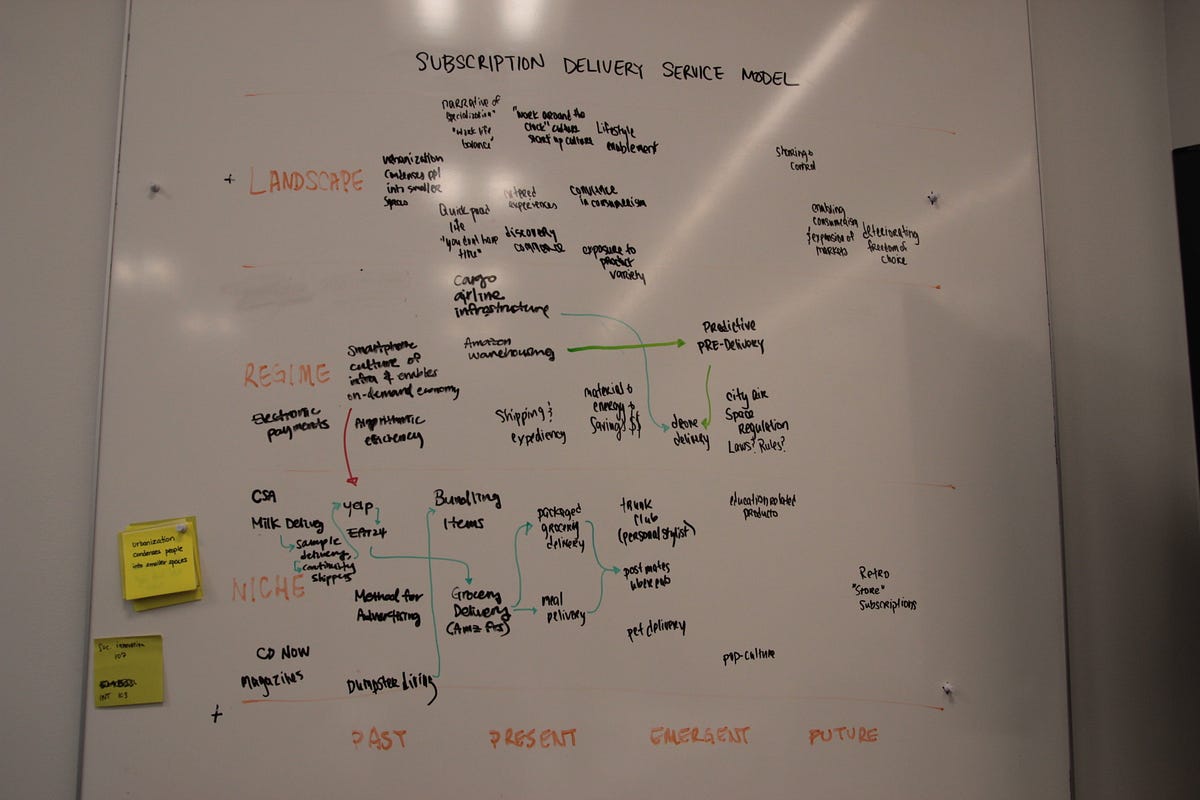 SUBSCRIPTION DELIVERY SERVICE MODEL
+ LANDSCAPE
urbanization
condenses ppl
into smaller
spaces
narrative of
specialization"
"work life
balance"
"work around the
clock" culture
start up culture
Lifestyle
enablement
Quick paced
life
"you don't have
time"
experiences
discovery
commerce
in consumerism
exposure to
product
variety
control
enabling
consumerism
expansion of
markets
deteriorating
freedom of
choice
REGIME
Smartphone
culture of
infra & enables
on-demand economy
Electronic
payments
Algorithmic
efficiency
Cargo
airline
infrastructure
Amazon
warehousing
Shipping &
expediency
material &
energy &
Savings $$
Predictive
PRE-Delivery
drone
delivery
city air
Space
Regulation
Laws? Rules?
NICHE
CSA
Milk Delivery
sample
delivery
continuity
shippers
yelp
EAT24
Method for
Advertising
CD NOW
Magazines
Dumpster diving
Bundling
Items
Grocery
Delivery
packaged
grocery
delivery
meal
delivery
trunk
club
(personal stylist)
postmates
pet delivery
education related
products
pop-culture
Retro
"Store"
Subscriptions
+
PAST PRESENT EMERGENT FUTURE
urbanization
condenses people
into smaller spaces
Soc. innovation
107
INT